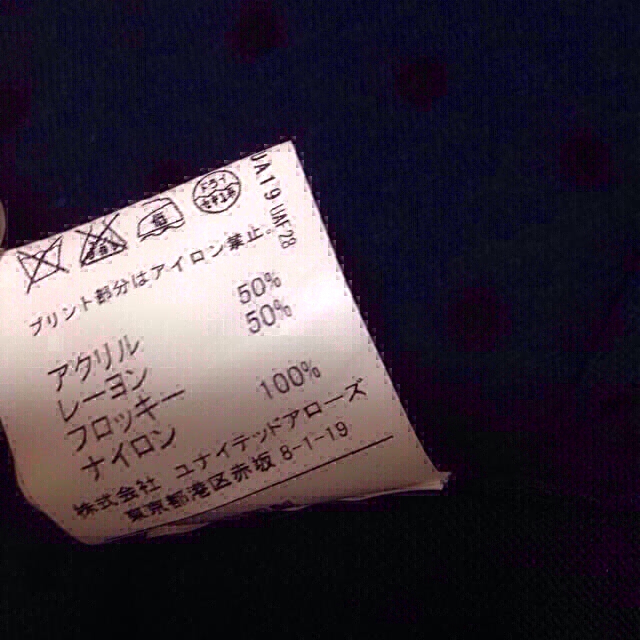 エンソサラシ
中
ドライ
セキユ系
UA19 UM'28
プリント部分はアイロン禁止.
アクリル 50%
レーヨン 50%
フロッキー
ナイロン 100%
株式会社 ユナイテッドアローズ
東京都港区赤坂 8-1-19